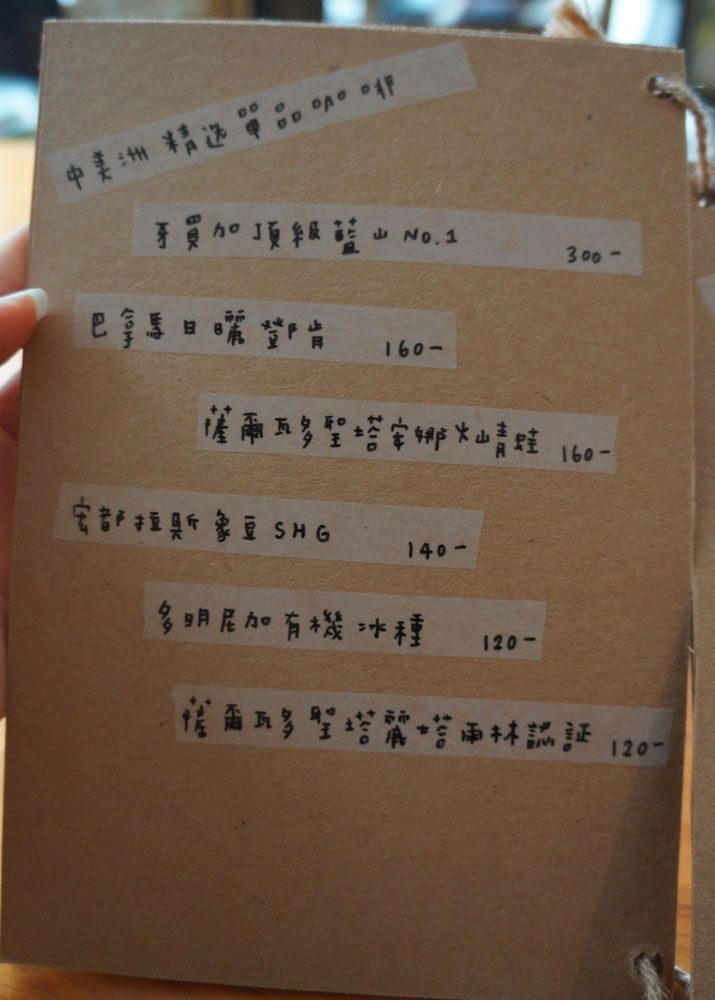 中美洲 精选 單品咖啡
牙買加頂級藍山 NO.1 300-
巴拿馬日曬鄧肯 160-
薩爾瓦多聖塔安娜火山青蛙 160-
宏都拉斯象豆 SHG 140-
多明尼加有機冰種 120-
薩爾瓦多聖塔麗塔雨林認証 120-